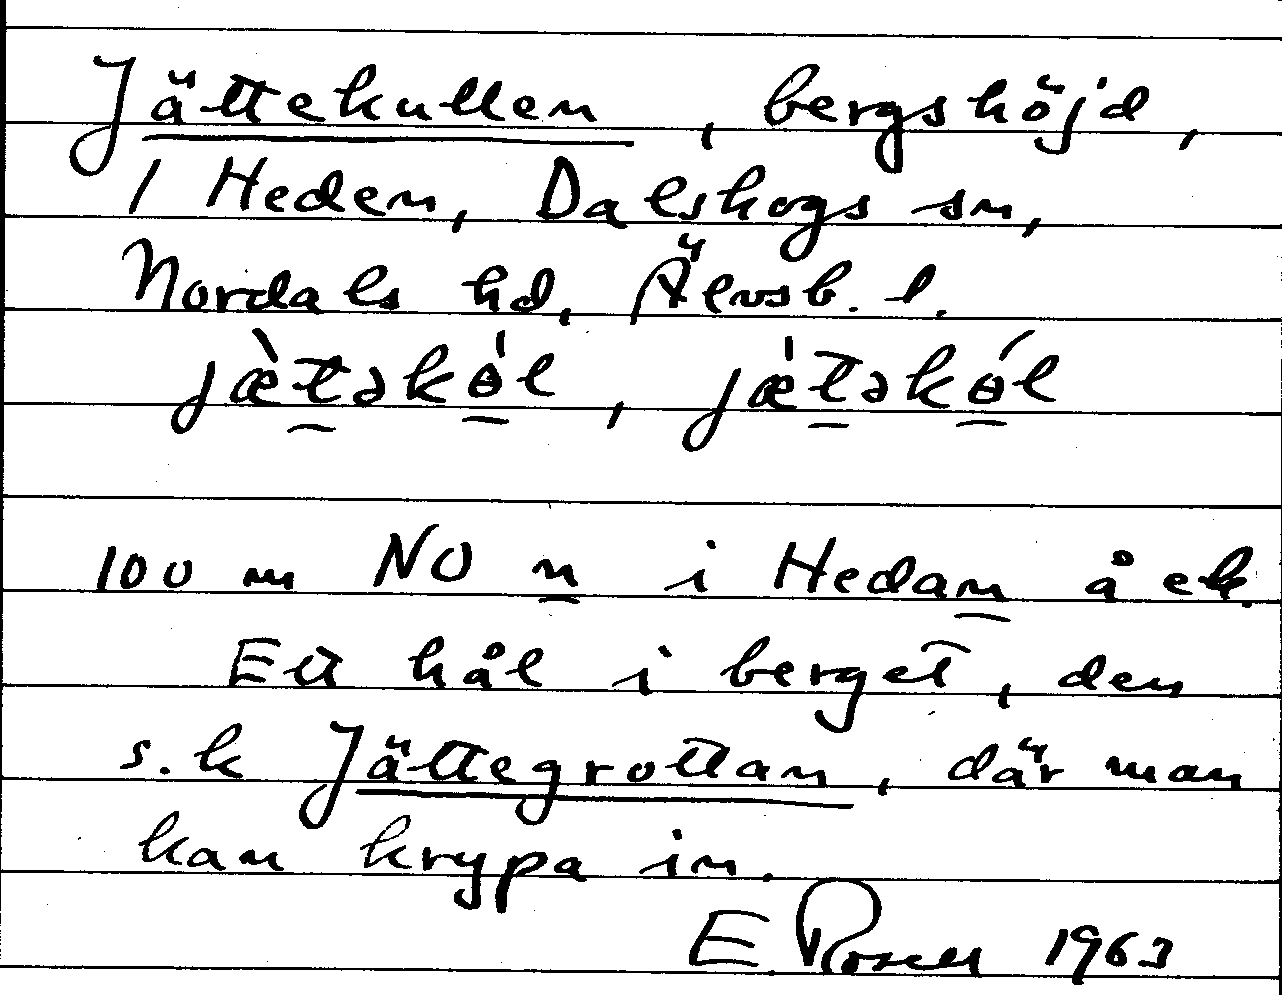 Jättekullen, bergshöjd,
1 Heden, Dalskogs sn,
Nordals hd, Älvsb. l.
jæ̀t̠əkɵ̠̍l, jæ̍t̠əkɵ̠́l
100 m NO n i Hedan å ek.
Ett hål i berget, den
s.k Jättegrottan, där man
kan krypa in.
E. Rosell 1963